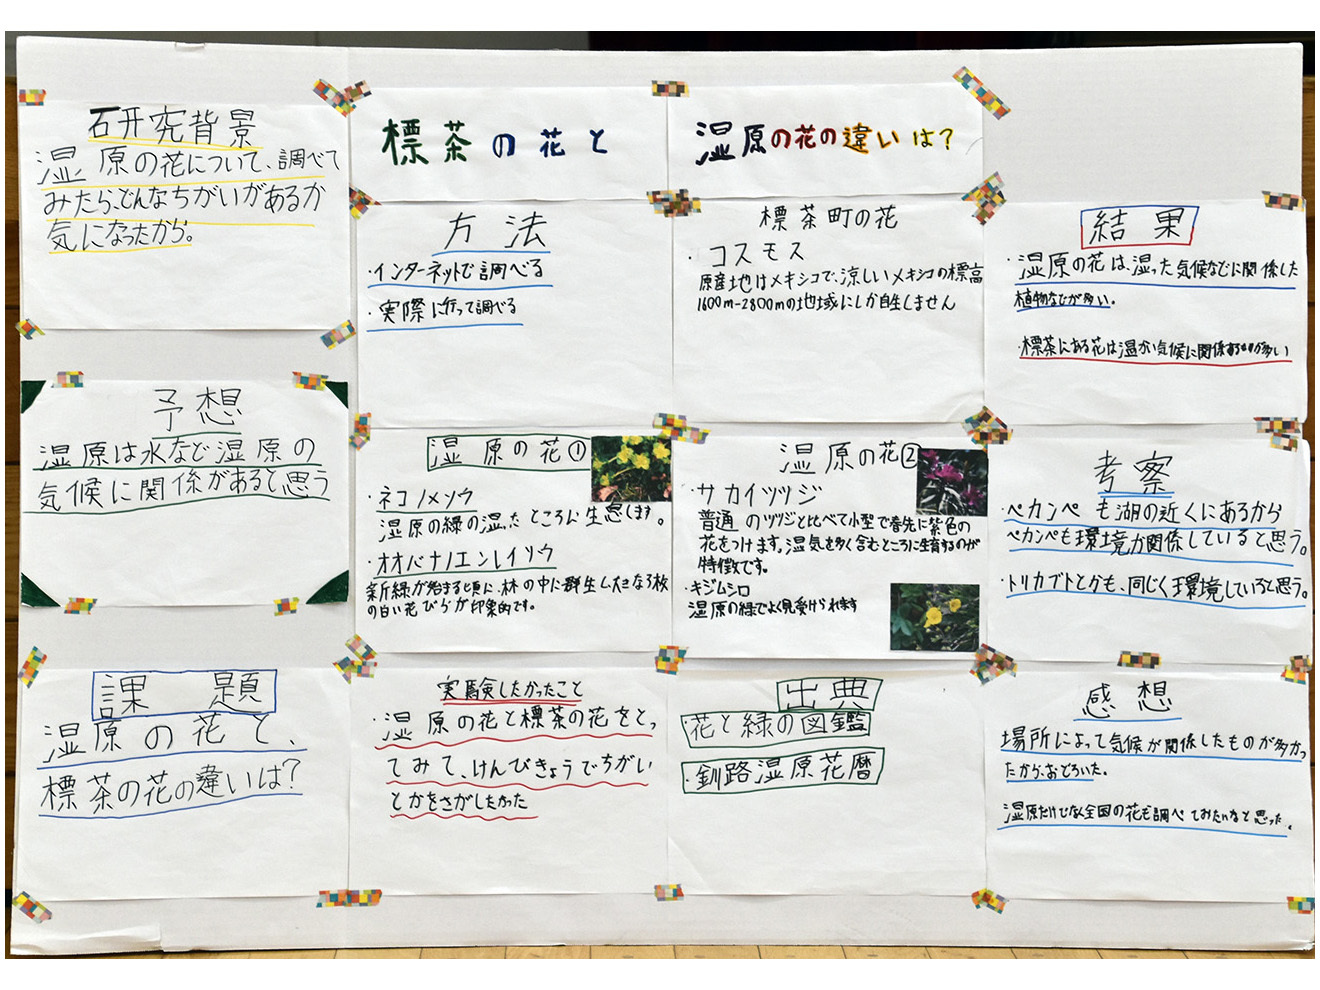 標茶の花と
湿原の花の違いは?
研究背景
湿原の花について、調べて
みたら、どんなちがいがあるか
気になったから。
予想
湿原は水など湿原の
気候に関係があると思う
課題
湿原の花と、
標茶の花の違いは?
方法
・インターネットで調べる
・実際に行って調べる
標茶町の花
・コスモス
原産地はメキシコで、涼しいメキシコの標高
1600m-2800mの地域にしか自生しません
湿原の花①
・ネコノメソウ
湿原の緑の湿ったところに生息します。
・オオバナノエンレイソウ
新緑が始まる頃に、林の中に群生し大きな3枚
の白い花びらが印象的です。
湿原の花②
・サカイツツジ
普通のツツジと比べて小型で春先に紫色の
花をつけます。湿気を多く含むところに生育するのが
特徴です。
・キジムシロ
湿原の緑でよく見受けられます
実験したかったこと
・湿原の花と標茶の花をとっ
てみて、けんびきょうでちがい
とかをさがしたかった
出典
・花と緑の図鑑
・釧路湿原花暦
結果
・湿原の花は、湿った気候などに関係した
植物などが多い。
・標茶にある花は温かい気候に関係するものが多い
考察
・ペカンペも湖の近くにあるから
ペカンペも環境が関係していると思う。
・トリカブトとかも、同じく環境していると思う。
感想
場所によって気候が関係したものが多かっ
たから、おどろいた。
湿原だけでなく全国の花も調べてみたいなと思った。